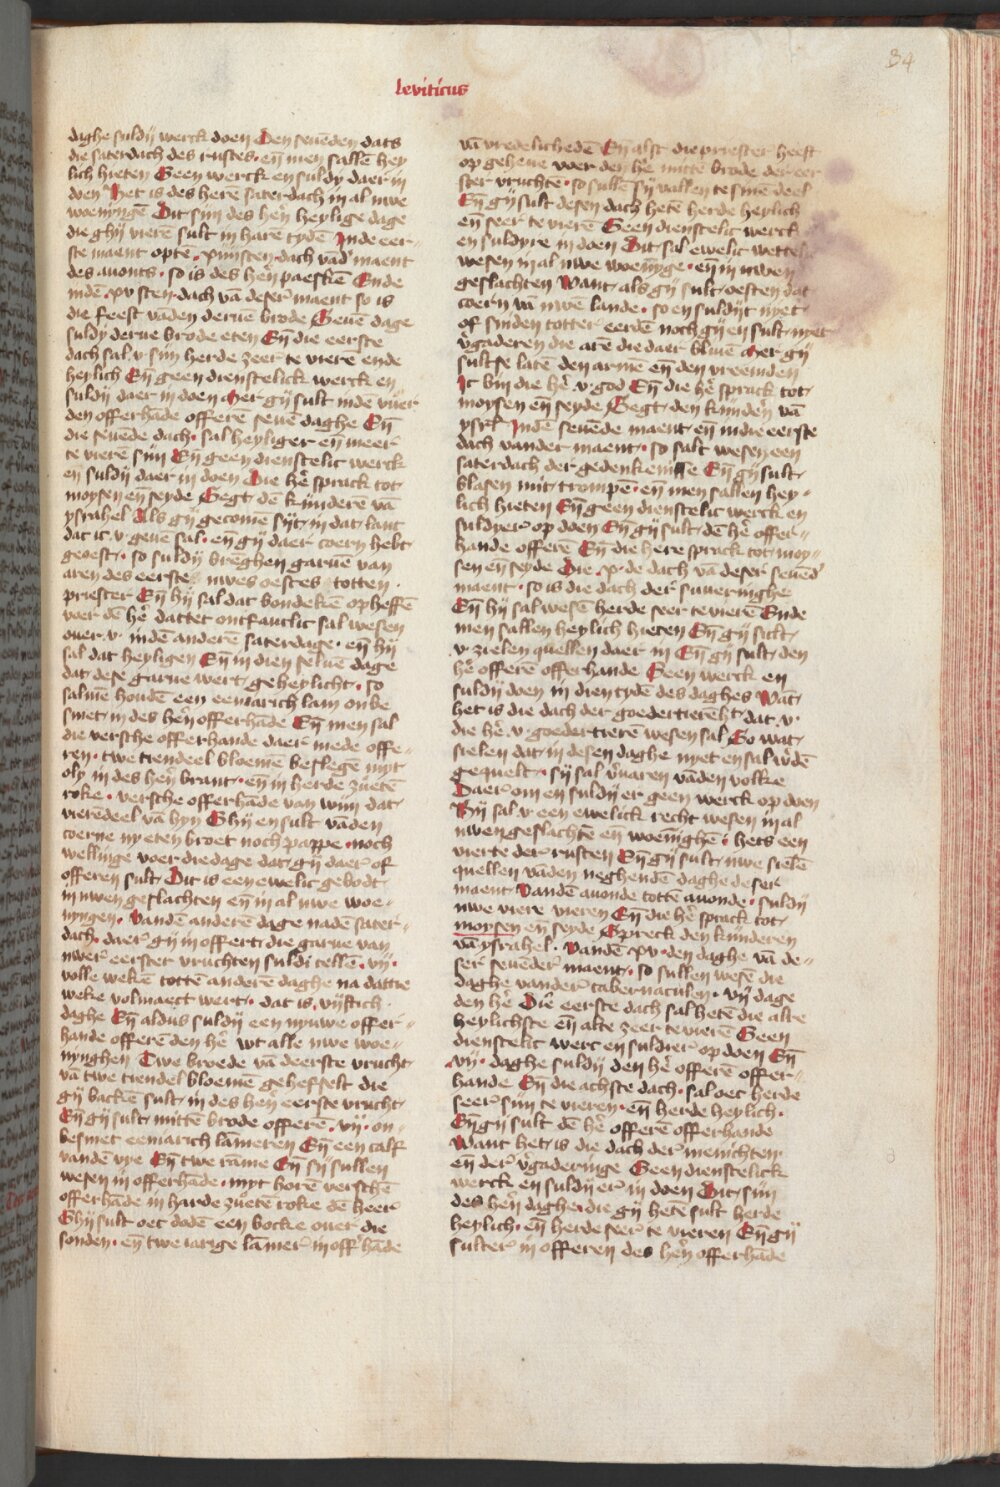 34
leviticus
daghe suldij werck doen Den seuēden dats
die saterdach des rustes · eñ men sallē hey
lich hieten Geen werck en suldy daer in
doen Het is des herē saterdach in al uwe
woenyngē Dit sijn des heñ heylige dage
die ghij vierē sult in harē tydē Inde eer-
ste maent optē · xiiijsten · dach vād maent
des auonts · so is des heñ paeskē Ende
indē · xv sten · dach vā deser maent so is
die feest vāden deruē brode Seuē dage
suldy derue brode eten Eñ die eerste
dach sal v sijn herde zeer te vierē ende
heylich Eñ geen dienstelick werck en
suldij daer in doen Mer gij sult indē vuer
den offerhāde offerē seuē daghe Eñ
die seuēde dach · sal heyliger eñ meer
te vierē sijn Eñ geen dienstelic werck
en suldij daer in doen Die hē sprack tot
moysen eñ seyde Segt dē kijnderē vā
ysrahel Als gij gecomē sijt in dat lant
dat ic v geuē sal · eñ gij daer coern hebt
geoest · so suldij brēghen garuē van
aren des eerstes uwes oestes totten
priester Eñ hij sal dat bondekē opheffē
voer dē hē dattet ontfanclic sal wesen
ouer v · indē anderē saterdage · eñ hij
sal dat heyligen Eñ in dien seluē dage
dat dese garue wert geheylicht · so
salmē houdē een eeniarich lam onbe
smet in des heñ offerhāde Eñ men sal
die versche offerhande daer mede offe-
ren · twe tiendeel bloemē beslegē myt
oly in des heñ brant · eñ in herde zuetē
roke · versche offerhāde van wijn dat
vierēdeel vā hyn Ghij en sult vāden
coerne ny eten broet noch pappe · noch
wellinge voer die dage dat gij daer of
offeren sult Dit is een ewelic gebodt
in uwen geslachten eñ in al uwe woe-
nyngen · Vandē anderē dage nadē sater-
dach · daer gij in offert die garue van
uwer eerster vruchten suldi tellē · vij ·
volle wekē tottē anderē daghe na dattie
weke volmaect wert · dat is vijftich ·
daghe Eñ aldus suldij een nyuwe offer-
hande offerē den hē wt alle uwe woe-
nynghen Twe broede vā deerste vrucht
vā twe tiendel bloemē geheffelt die
gij backē sult in des heñ eerste vrucht
Eñ gij sult mittē brode offerē · vij · on-
besmet eeniarich lāmeren Eñ een calf
vandē vye Eñ twe rāme Eñ sij sullen
wesen in offerhāde · myt horē verschē
offerhāde in harde zuetē roke dē heer
Ghij sult oec dodē een bocke ouer die
sonden · eñ twe iarige lāmer in off'hāde
vā vredelichedē Eñ alst die priester heeft
op geheue voer den hē mittē brode der eer
ster vruchtē · so sullē sij vallen te sinē deel
Eñ gij sult desen dach hetē herde heylich
eñ seer te vierē Geen dienstelic werck
en suldyre in doen Dit sal ewelic wettel
wesen in al uwe woenijge · eñ in uwen
geslachten Want als gij sult oesten dat
coern vā uwē lande · so en suldijt nyet
of snijden totter eerdē noch gij en sult nyet
v'gaderen die arē die daer bliuē Mer gij
sultse latē den armē eñ den vreemden
Ic bin die hē v god Eñ die hē sprack tot
moysen eñ seyde Segt den kijnderē vā
ysrl' Indē seuēde maent eñ indie eerste
dach vander maent · so salt wesen een
saterdach der gedenkenisse Eñ gij sult
blasen mit trompē · eñ men sallen hey-
lich hieten Eñ geen dienstelic werck en
suldyer op doen Eñ gij sult dē hē offer-
hande offerē Eñ die here sprack tot moy-
sen eñ seyde Die · x · de dach vā deser seuēd'
maent · so is die dach der suueringhe
Eñ hij sal wesē herde seer te vierē Ende
men sallen heylich hieten Eñ gij sult
v zielen quellen daer in Eñ gij sult den
hē offerē offerhande Geen werck en
suldij doen in dien tydē des daghes Wāt
het is die dach der goedertierēht dat v
die hē v goedertierē wesen sal So wat
sielen dat in desen daghe nyet en sal w'dē
gequelt · sij sal v'uaren vāden volke
Daer om en suldij er geen werck op doen
Hij sal v een ewelick recht wesen in al
uwen geslachtē eñ woenīghē · hets een
vierte der rusten Eñ gij sult uwe sielē
quellen vāden neghendē daghe deser
maent Vandē auonde tottē auonde · suldij
uwe viere vieren Eñ die hē sprack tot
moysen eñ seyde Spreck den kijnderen
vā ysrahel · Vandē · xv · den daghe vā de-
ser seuēder maent · so sullen wesē die
daghe vander tabernaculen · vij dage
den hē Die eerste dach sal hetē die alre
heylichste eñ alte zeer te vierē Geen
dienstelic werc en suldier op doen Eñ
· vij · daghe suldij den hē offerē offer-
hande Eñ die achste dach · sal oec herde
seer sijn te vieren · eñ herde heylich ·
Eñ gij sult dē hē offerē offerhande
Want het is die dach der menichten
eñ der v'gaderinge Geen dienstelick
werck en suldij er in doen Dit sijn
des heñ daghe · die gij hetē sult herde
heylich · eñ herde seer te vieren Eñ gij
sulter in offeren des heñ offerhāde